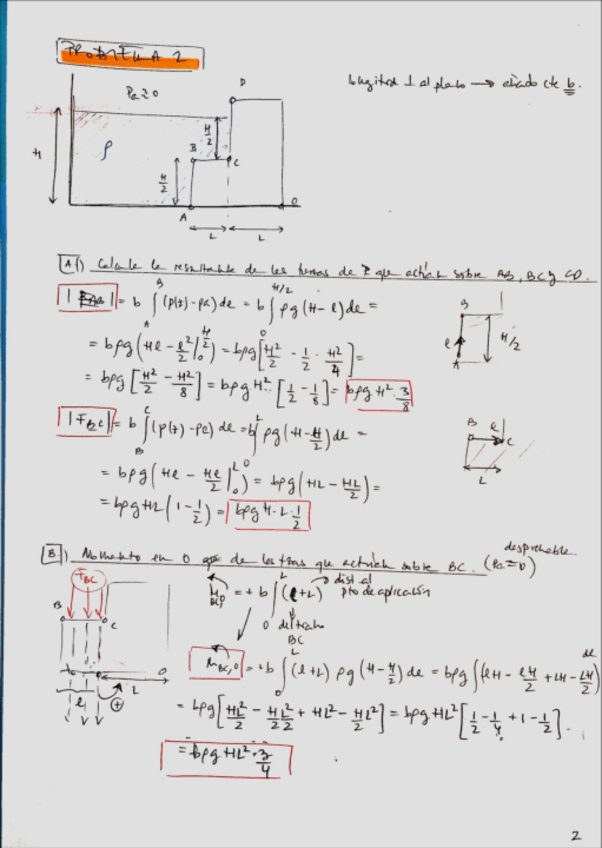 PROBLEMA 2
longitud ⊥ al plano → añado cte b.
Pa≃0
D
H
ρ
H/2
B
C
H/2
A
O
L
L
A1) Calcula la resultante de las fuerzas de P que actúan sobre AB, BC y CD.
|F_AB| = b ∫_A^B (p(z) - pa) dl = b ∫_0^{H/2} ρg (H - l) dl =
= bρg (Hl - l²/2 |_0^{H/2}) = bρg [H²/2 - 1/2 · H²/4] =
= bρg [H²/2 - H²/8] = bρg H² · [1/2 - 1/8] = bρg H² · 3/8
B
l
A
H/2
|F_BC| = b ∫_B^C (p(z) - pa) dl = b ∫_0^L ρg (H - H/2) dl =
= bρg (Hl - Hl/2 |_0^L) = bρg (HL - HL/2) =
= bρg HL (1 - 1/2) = bρg H·L·1/2
B
l
C
L
B.) Momento en O de las fzas que actúan sobre BC. (Pa≃0) despreciable.
F_BC
B
C
O
L
l
+
M_BC,O = + b ∫_0^L (l+L) → dist al pto de aplicación
del tramo BC
M_BC,O = +b ∫_0^L (l+L) ρg (H - H/2) dl = bρg ∫ (lH - lH/2 + LH - LH/2) dl
= bρg [HL²/2 - HL²/2·2 + HL² - HL²/2] = bρg HL² [1/2 - 1/4 + 1 - 1/2].
= bρg HL² · 3/4
2